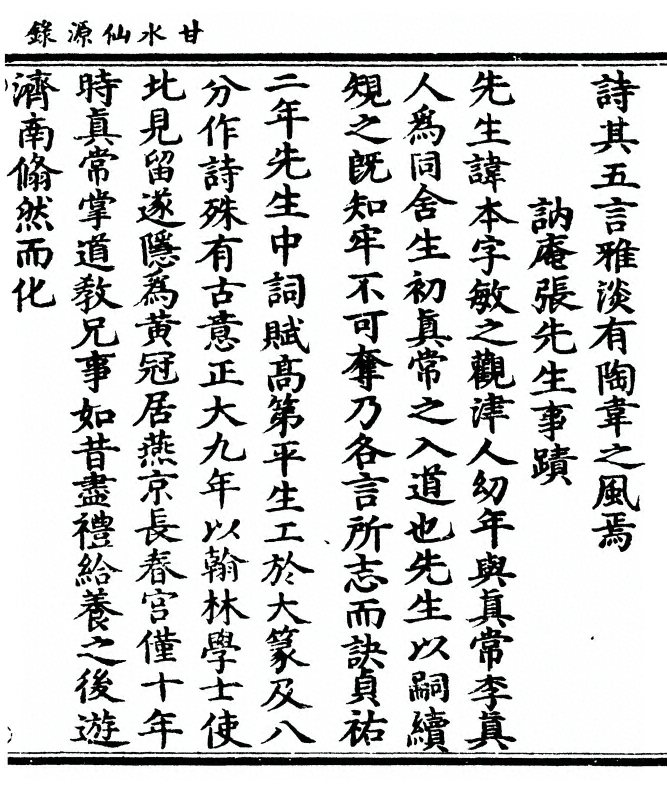 甘水仙源錄
詩其五言雅淡有陶韋之風焉
訥庵張先生事蹟
先生諱本字敏之觀津人幼年與眞常李眞
人爲同舍生初眞常之入道也先生以嗣續
規之旣知牢不可奪乃各言所志而訣貞祐
二年先生中詞賦高第平生工於大篆及八
分作詩殊有古意正大九年以翰林學士使
北見留遂隱爲黃冠居燕京長春宮僅十年
時眞常掌道敎兄事如昔盡禮給養之後遊
濟南翛然而化